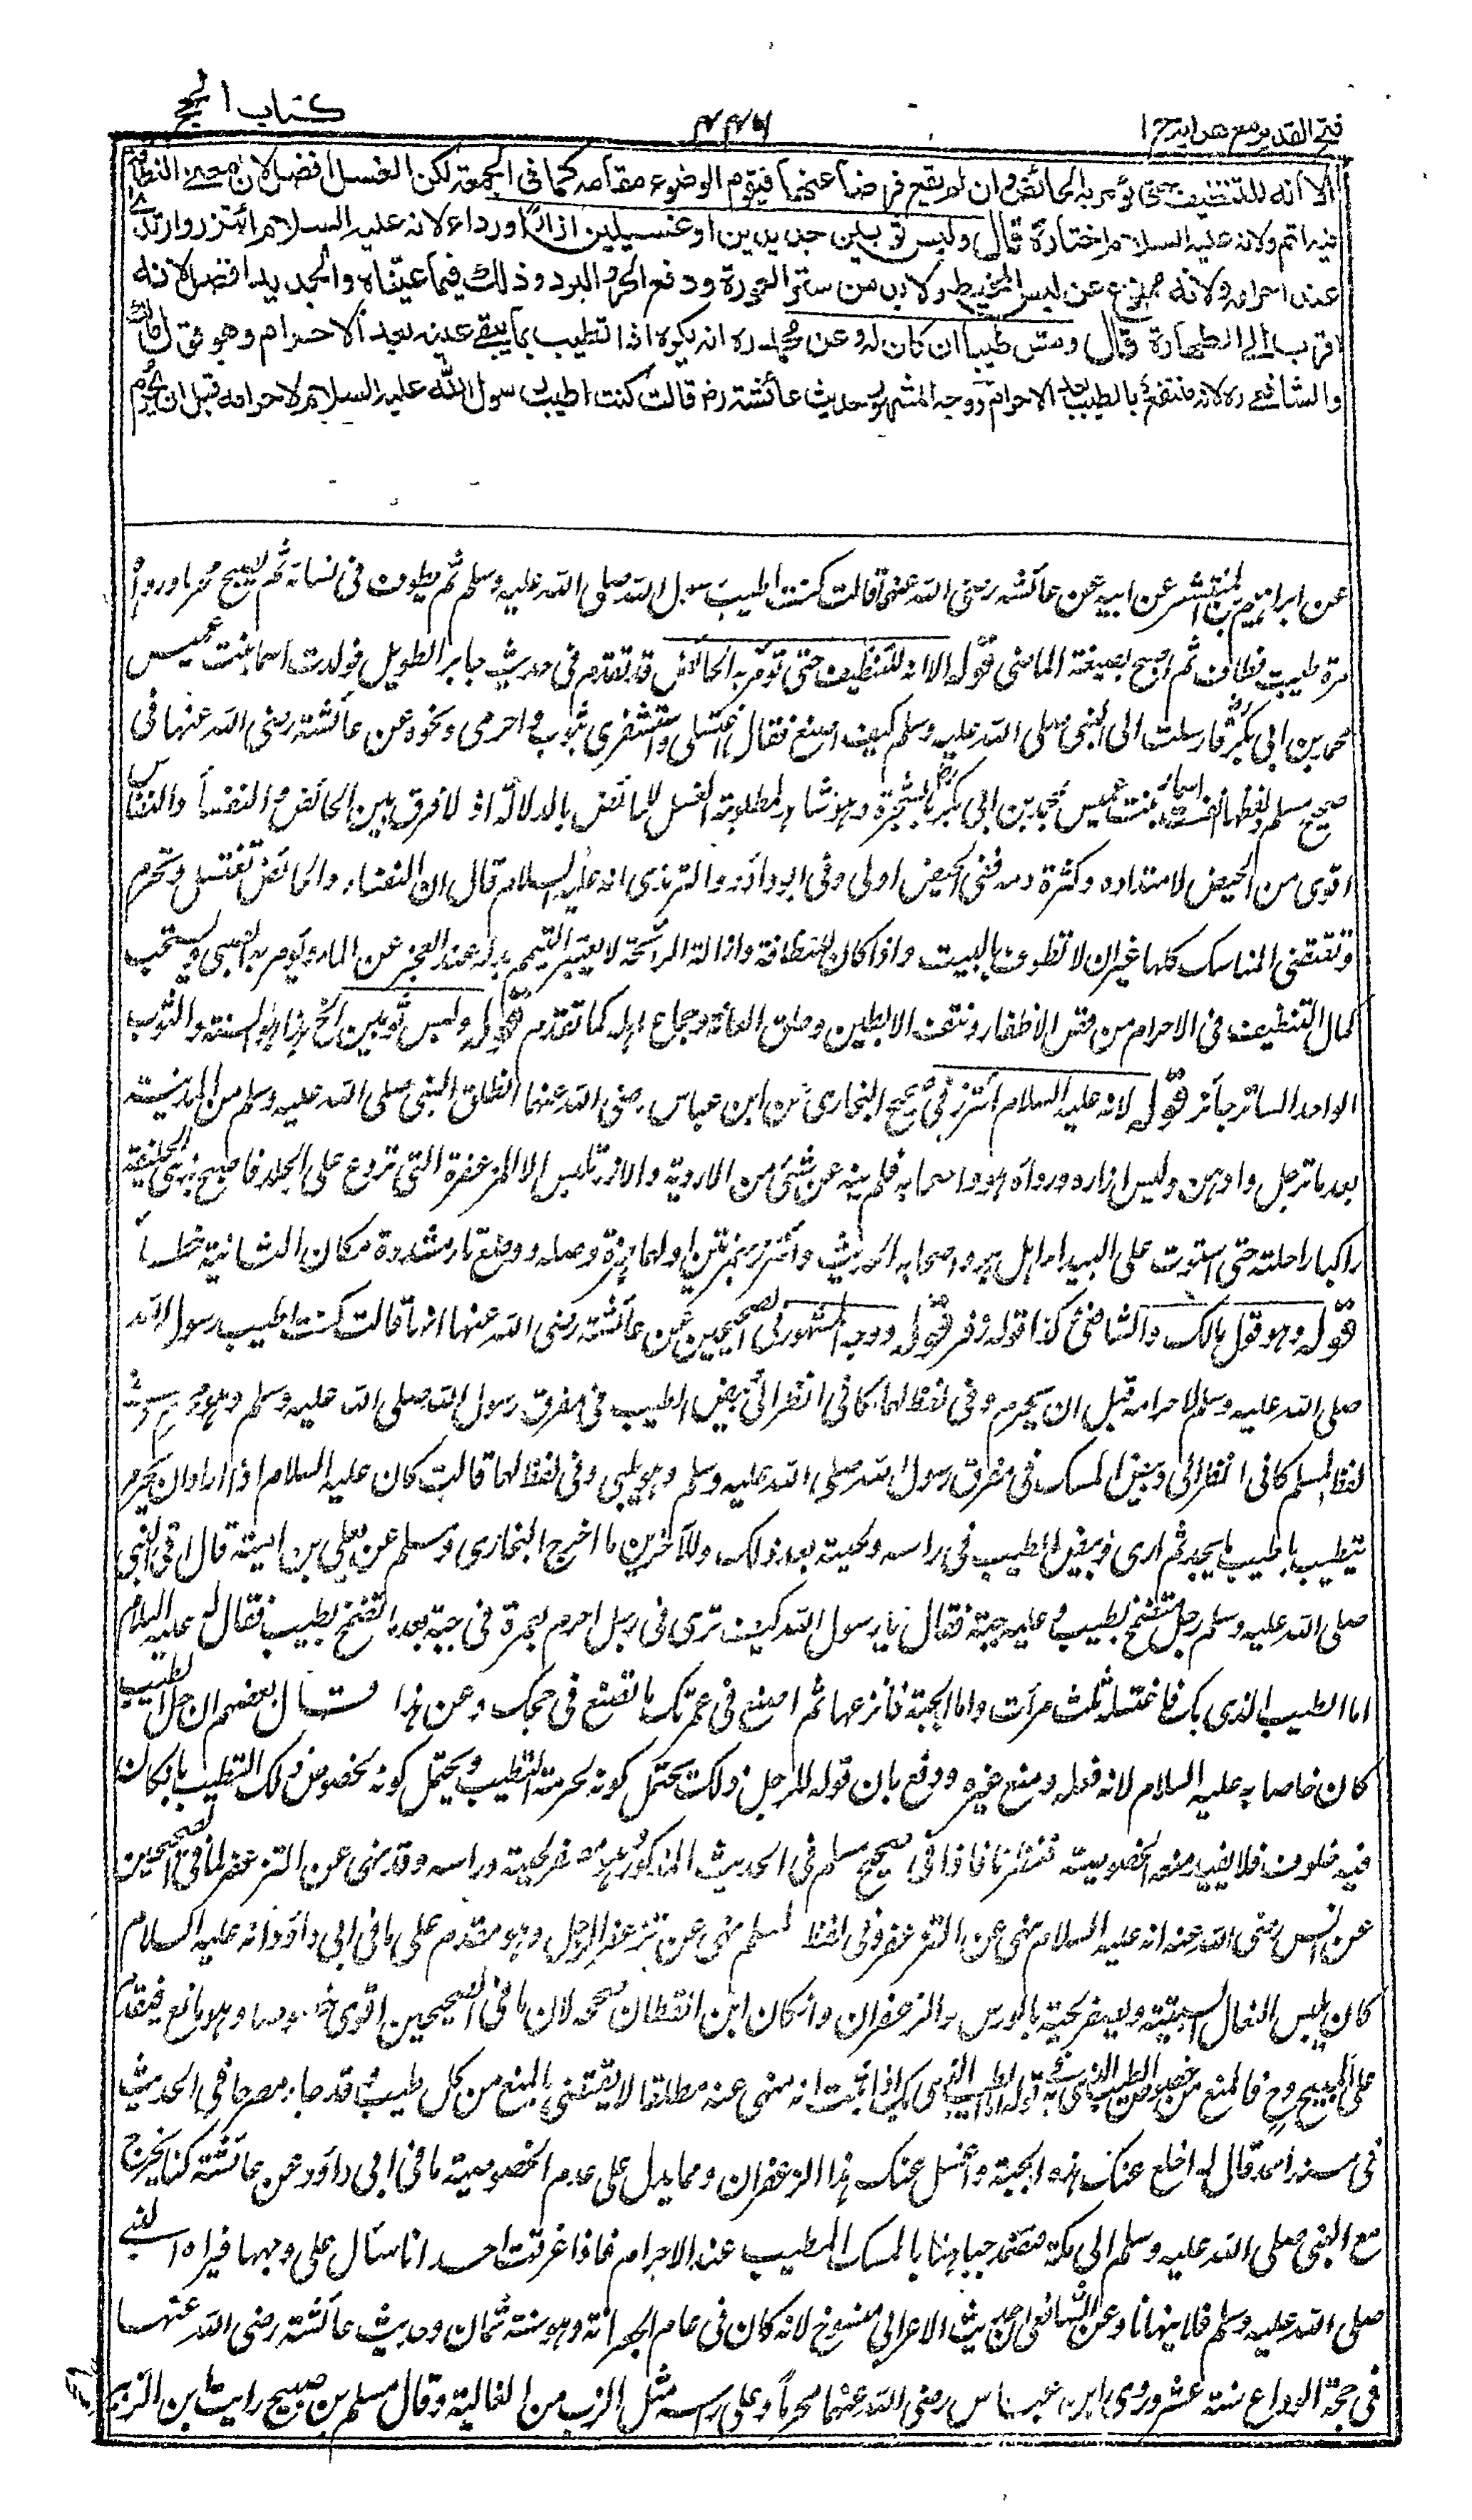 فتح القدير مع هدايه ج ١
٣٣٦
كتاب الحج
الا انه للتنظيف حتى تؤمر به الحائض وان لم يقع فرضا عنها فيقوم الوضوء مقامه كما فى الجمعة لكن الغسل افضل لان معنى النظافة
فيه اتم ولانه عليه السلام اختاره قال ولبس ثوبين جديدين او غسيلين ازارا ورداء لانه عليه السلام ائتزر وارتدى
عند احرامه ولانه ممنوع عن لبس المخيط ولا بد من ستر العورة ودفع الحر والبرد وذلك فيما عيناه والجديد افضل لانه
اقرب الى الطهارة قال ومس طيبا ان كان له وعن محمد ره انه يكره اذا تطيب بما يبقى عينه بعد الاحرام وهو قول مالك
والشافعى ره لانه منتفع بالطيب بعد الاحرام ووجه المشهور حديث عائشة رض قالت كنت اطيب رسول الله عليه السلام لاحرامه قبل ان يحرم
عن ابراهيم بن المنتشر عن ابيه عن عائشه رضى الله عنها قالت كنت اطيب رسول الله صلى الله عليه وسلم ثم يطوف فى نسائه ثم يصبح محرما ورواه
مرة طيبت فطاف ثم اصبح بصيغة الماضى قوله الا انه للتنظيف حتى تؤمر به الحائض قد تقدم فى حديث جابر الطويل فولدت اسماء بنت عميس
محمد بن ابى بكر فارسلت الى النبى صلى الله عليه وسلم كيف اصنع فقال اغتسلى واستثفرى بثوب واحرمى ونحوه عن عائشة رضى الله عنها فى
صحيح مسلم ولفظها نفست اسماء بنت عميس بمحمد بن ابى بكر بالشجرة وهو شاهد لمطلوبية الغسل للحائض بالدلالة اذ لا فرق بين الحائض والنفساء والنفاس
اقوى من الحيض لامتداده وكثرة دمه ففى الحيض اولى وفى ابو داؤد والترمذى انه عليه السلام قال ان النفساء والحائض تغتسل وتحرم
وتقضى المناسك كلها غير ان لا تطوف بالبيت واذا كان للنظافة وازالة الرائحة لا يعتبر التيمم بدله عند العجز عن الماء ويؤمر به الصبى ويستحب
كمال التنظيف فى الاحرام من قص الاظفار ونتف الابطين وحلق العانة وجماع اهله كما تقدم قوله ولبس ثوبين الخ هذا هو السنة والثوب
الواحد الساتر جائز قوله لانه عليه السلام ائتزر فى صحيح البخارى عن ابن عباس رضى الله عنهما انطلق النبى صلى الله عليه وسلم من المدينة
بعد ما ترجل وادهن ولبس ازاره ورداءه هو واصحابه فلم ينه عن شئ من الاردية والازر تلبس الا المزعفرة التى تردع على الجلد فاصبح بذى الحليفة
راكبا راحلته حتى استوت على البيداء اهل هو واصحابه الحديث وائتزر بهمزتين اولهما همزة وصل ووضع تاء مشددة مكان الثانية خطأ
قوله وهو قول مالك والشافعى كذا قول زفر قوله ووجه المشهور فى الصحيحين عن عائشة رضى الله عنها انها قالت كنت اطيب رسول الله
صلى الله عليه وسلم لاحرامه قبل ان يحرم وفى لفظ لهما كانى انظر الى وبيص الطيب فى مفرق رسول الله صلى الله عليه وسلم وهو محرم وفى
لفظ لمسلم كانى انظر الى وبيص المسك فى مفرق رسول الله صلى الله عليه وسلم وهو يلبى وفى لفظ لهما قالت كان عليه السلام اذا اراد ان يحرم
تطيب باطيب ما يجد ثم ارى وبيص الطيب فى راسه ولحيته بعد ذلك وللآخرين ما اخرج البخارى ومسلم عن يعلى بن امية قال اتى النبى
صلى الله عليه وسلم رجل متضمخ بطيب وعليه جبة فقال يا رسول الله كيف ترى فى رجل احرم بعمرة فى جبة بعد ما تضمخ بطيب فقال له عليه السلام
اما الطيب الذى بك فاغسله ثلث مرات واما الجبة فانزعها ثم اصنع فى عمرتك ما تصنع فى حجك وعن هذا قال بعضهم ان حل الطيب
كان خاصا به عليه السلام لانه فعله ومنع غيره ودفع بان قوله للرجل ذلك يحتمل كونه لحرمة التطيب ويحتمل كونه لخصوص ذلك التطيب بان كان
فيه خلوف فلا يفيد منعه الخصوصية فنظرنا فاذا فى صحيح مسلم فى الحديث المذكور وهو مصفر لحيته وراسه وقد نهى عن التزعفر لما فى الصحيحين
عن انس رضى الله عنه انه عليه السلام نهى عن التزعفر وفى لفظ لمسلم نهى عن تزعفر الرجل وهو مقدم على ما فى ابى داؤد انه عليه السلام
كان يلبس النعال السبتية ويصفر لحيته بالورس والزعفران وان كان ابن القطان صححه لان ما فى الصحيحين اقوى خصوصا وهو مانع فيقدم
على المبيح وح فالمنع من خصوص الطيب الذى به قوله اما الطيب الذى بك اذا ثبت انه نهى عنه مطلقا لا يقتضى المنع من كل طيب وقد جاء مصرحا فى الحديث
فى مسند احمد قال له اخلع عنك هذه الجبة واغسل عنك هذا الزعفران ومما يدل على عدم الخصوصية ما فى ابى داؤد عن عائشة كنا نخرج
مع النبى صلى الله عليه وسلم الى مكة فنضمد جباهنا بالمسك المطيب عند الاحرام فاذا عرقت احدانا سال على وجهها فيراه النبى
صلى الله عليه وسلم فلا ينهانا وعن الشافعى حديث الاعرابى منسوخ لانه كان فى عام الجعرانة وهو سنة ثمان وحديث عائشة رضى الله عنها
فى حجة الوداع سنة عشر وروى ابن عباس رضى الله عنهما محرما وعلى راسه مثل الرب من الغالية وقال مسلم بن صبيح رايت ابن الزبير